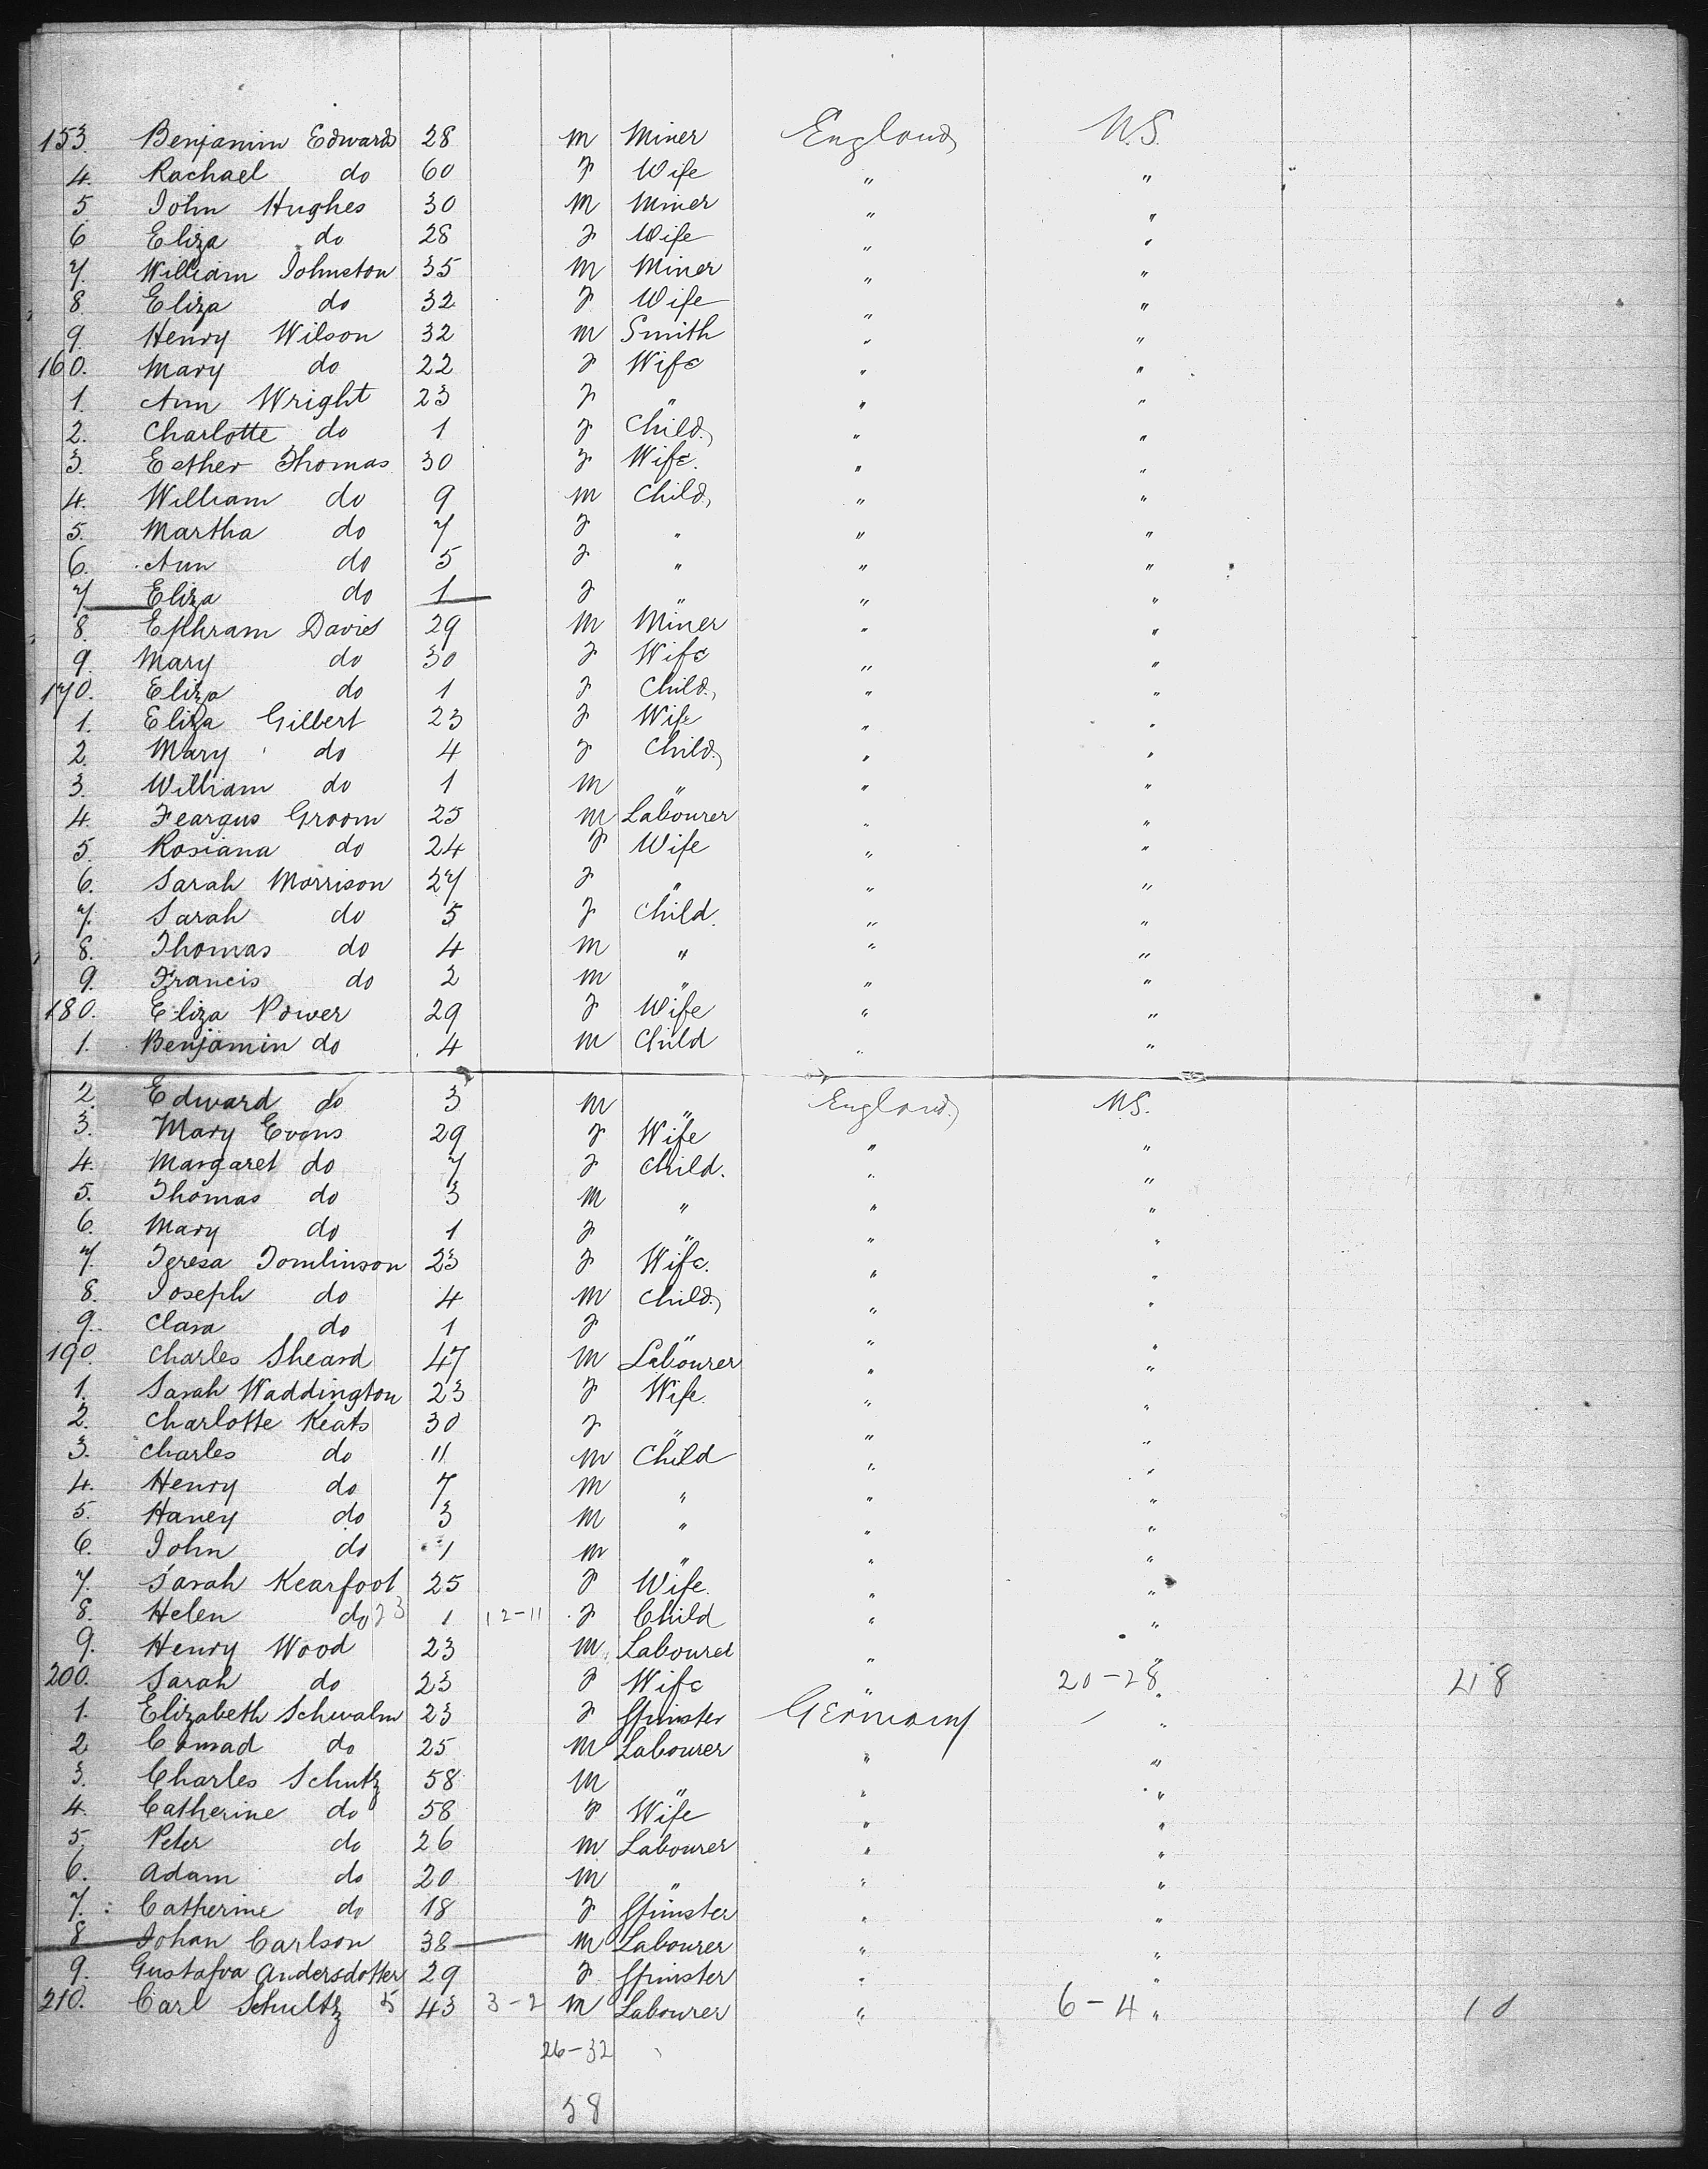 153. Benjamin Edwards 28 m Miner England U.S.
4. Rachael do 60 F Wife " "
5. John Hughes 30 m Miner " "
6 Eliza do 28 F Wife " "
7. William Johnston 35 m Miner " "
8. Eliza do 32 F Wife " "
9. Henry Wilson 32 m Smith " "
160. Mary do 22 F Wife " "
1. Ann Wright 23 F " " "
2. Charlotte do 1 F Child " "
3. Esther Thomas 30 F Wife. " "
4. William do 9 m Child " "
5. Martha do 7 F " " "
6. Ann do 5 F " " "
7 Eliza do 1 F " " "
8. Ephram Davies 29 m Miner " "
9. Mary do 30 F Wife " "
170. Eliza do 1 F Child " "
1. Eliza Gilbert 23 F Wife " "
2. Mary do 4 F Child " "
3. William do 1 m " " "
4. Feargus Groom 25 m Labourer " "
5. Rosiana do 24 F Wife " "
6. Sarah Morrison 27 F " " "
7. Sarah do 5 F Child. " "
8. Thomas do 4 m " " "
9. Francis do 2 m " " "
180. Eliza Power 29 F Wife " "
1. Benjamin do 4 m Child " "
2. Edward do 3 m " England U.S.
3. Mary Evans 29 F Wife " "
4. Margaret do 7 F Child. " "
5. Thomas do 3 m " " "
6. Mary do 1 F " " "
7. Teresa Tomlinson 23 F Wife. " "
8. Joseph do 4 m Child " "
9. Clara do 1 F " " "
190. Charles Sheard 47 m Labourer " "
1. Sarah Waddington 23 F Wife. " "
2. Charlotte Keats 30 F " " "
3. Charles do 11 m Child " "
4. Henry do 7 m " " "
5. Haney do 3 m " " "
6. John do 1 m " " "
7. Sarah Kearfoot 25 F Wife. " "
8. Helen do 23 1 12-11 F Child " "
9. Henry Wood 23 m Labourer " "
200. Sarah do 23 F Wife " 20-28 " 48
1. Elizabeth Schwalm 23 F Spinster Germany "
2 Conrad do 25 m Labourer " "
3. Charles Schutz 58 m " " "
4. Catherine do 58 F Wife " "
5. Peter do 26 m Labourer " "
6. Adam do 20 m " " "
7. Catherine do 18 F Spinster " "
8 Johan Carlson 38 m Labourer " "
9. Gustafva Andersdotter 29 F Spinster " "
210. Carl Schultz 5 43 3-2 m Labourer " 6-4 " 10
26-32
58